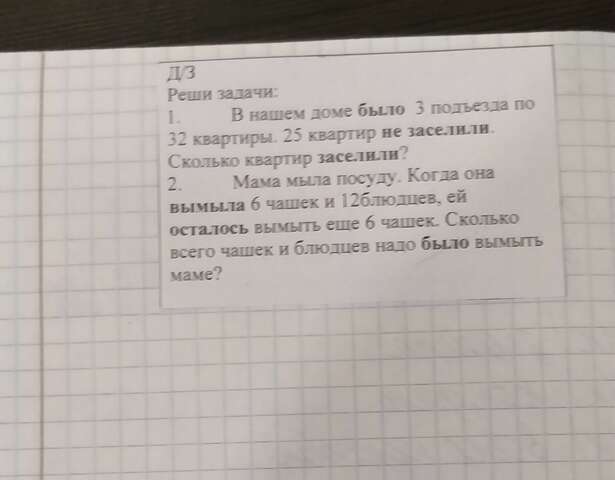 Д/З
Реши задачи:
1. В нашем доме было 3 подъезда по
32 квартиры. 25 квартир не заселили.
Сколько квартир заселили?
2. Мама мыла посуду. Когда она
вымыла 6 чашек и 12блюдцев, ей
осталось вымыть еще 6 чашек. Сколько
всего чашек и блюдцев надо было вымыть
маме?